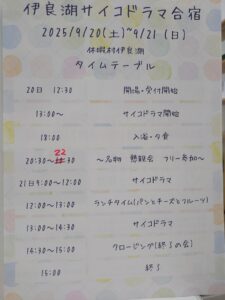 伊良湖サイコドラマ合宿
2025/9/20(土)~9/21(日)
休暇村伊良湖
タイムテーブル
20日 12:30 開場・受付開始
13:00~ サイコドラマ開始
18:00 入浴・夕食
20:30~22:30 ~名物 懇親会 フリー参加~
21日9:00~12:00 サイコドラマ
12:00~13:00 ランチタイム(パンとチーズとフルーツ)
13:00~14:30 サイコドラマ
14:30~15:00 クロージング(終了の会)
15:00 終了